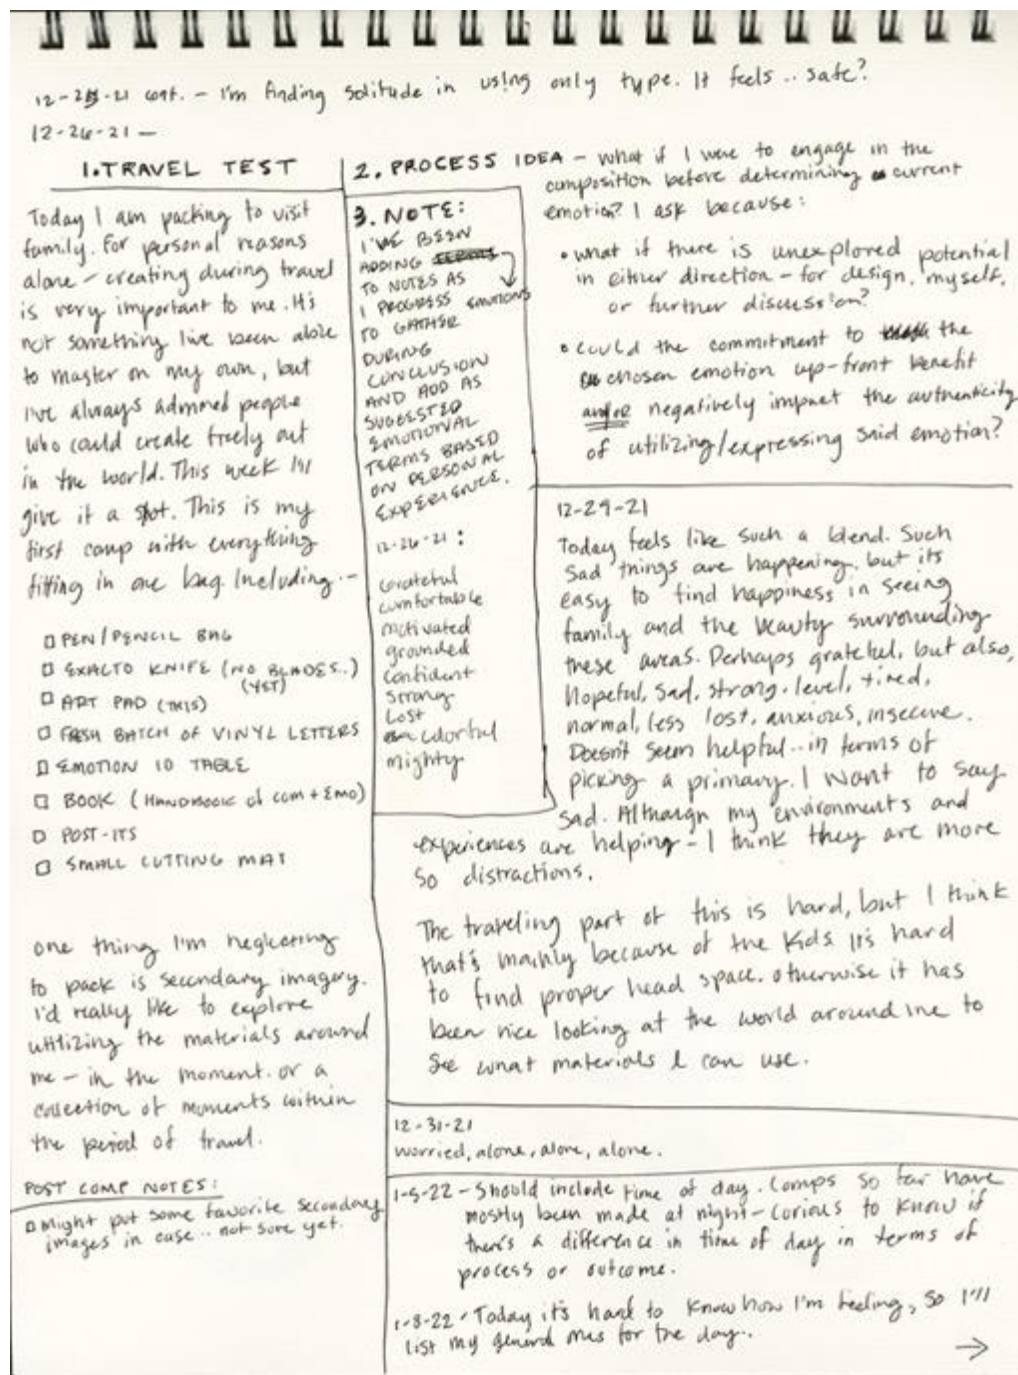 12-25-21 cont. - I'm finding solitude in using only type. It feels .. safe?
12-26-21 —
1. TRAVEL TEST
Today I am packing to visit
family. For personal reasons
alone - creating during travel
is very important to me. It's
not something I've been able
to master on my own, but
I've always admired people
who could create freely out
in the world. This week I'll
give it a shot. This is my
first comp with everything
fitting in one bag. Including: -
□ PEN/PENCIL BAG
□ EXACTO KNIFE (NO BLADES..)
(YET)
□ ART PAD (THIS)
□ FRESH BATCH OF VINYL LETTERS
□ EMOTION 10 TABLE
□ BOOK (HANDBOOK of COM + EMO)
□ POST-ITS
□ SMALL CUTTING MAT
one thing I'm neglecting
to pack is secondary imagery.
I'd really like to explore
utilizing the materials around
me - in the moment. or a
collection of moments within
the period of travel.
POST COMP NOTES:
□ Might put some favorite secondary
images in case .. not sure yet.
2. PROCESS IDEA - what if I were to engage in the
composition before determining current
emotion? I ask because:
• what if there is unexplored potential
in either direction - for design, myself,
or further discussion?
• could the commitment to the
chosen emotion up-front benefit
and/or negatively impact the authenticity
of utilizing/expressing said emotion?
3. NOTE:
I'VE BEEN
ADDING
TO NOTES AS
I PROGRESS EMOTIONS
TO GATHER
DURING
CONCLUSION
AND ADD AS
SUGGESTED
EMOTIONAL
TERMS BASED
ON PERSONAL
EXPERIENCE.
12-26-21:
Grateful
comfortable
motivated
grounded
confident
strong
Lost
colorful
mighty
12-29-21
Today feels like such a blend. Such
sad things are happening, but its
easy to find happiness in seeing
family and the beauty surrounding
these areas. Perhaps grateful, but also,
Hopeful, sad, strong, level, tired,
normal, less lost, anxious, insecure.
Doesn't seem helpful .. in terms of
picking a primary. I want to say
sad. Although my environments and
experiences are helping - I think they are more
so distractions.
The traveling part of this is hard, but I think
that's mainly because of the kids. It's hard
to find proper head space. otherwise it has
been nice looking at the world around me to
see what materials I can use.
12-31-21
worried, alone, alone, alone.
1-5-22 - Should include time of day. Comps so far have
mostly been made at night - curious to know if
there's a difference in time of day in terms of
process or outcome.
1-8-22 - Today it's hard to know how I'm feeling, so I'll
list my general ones for the day..
→